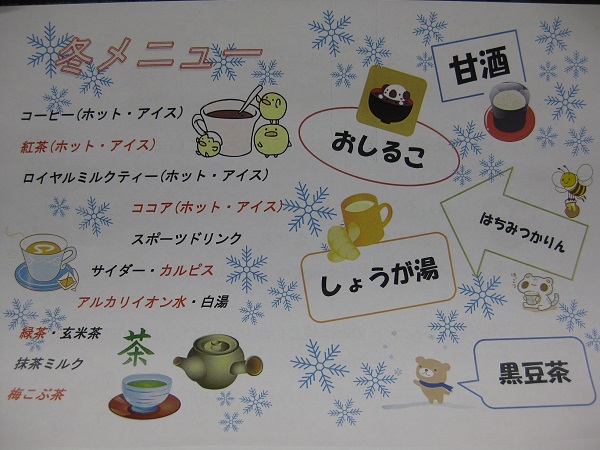 冬メニュー
コーヒー(ホット・アイス)
紅茶(ホット・アイス)
ロイヤルミルクティー(ホット・アイス)
ココア(ホット・アイス)
スポーツドリンク
サイダー・カルピス
アルカリイオン水・白湯
緑茶・玄米茶
抹茶ミルク
梅こぶ茶
茶
甘酒
おしるこ
はちみつかりん
しょうが湯
黒豆茶